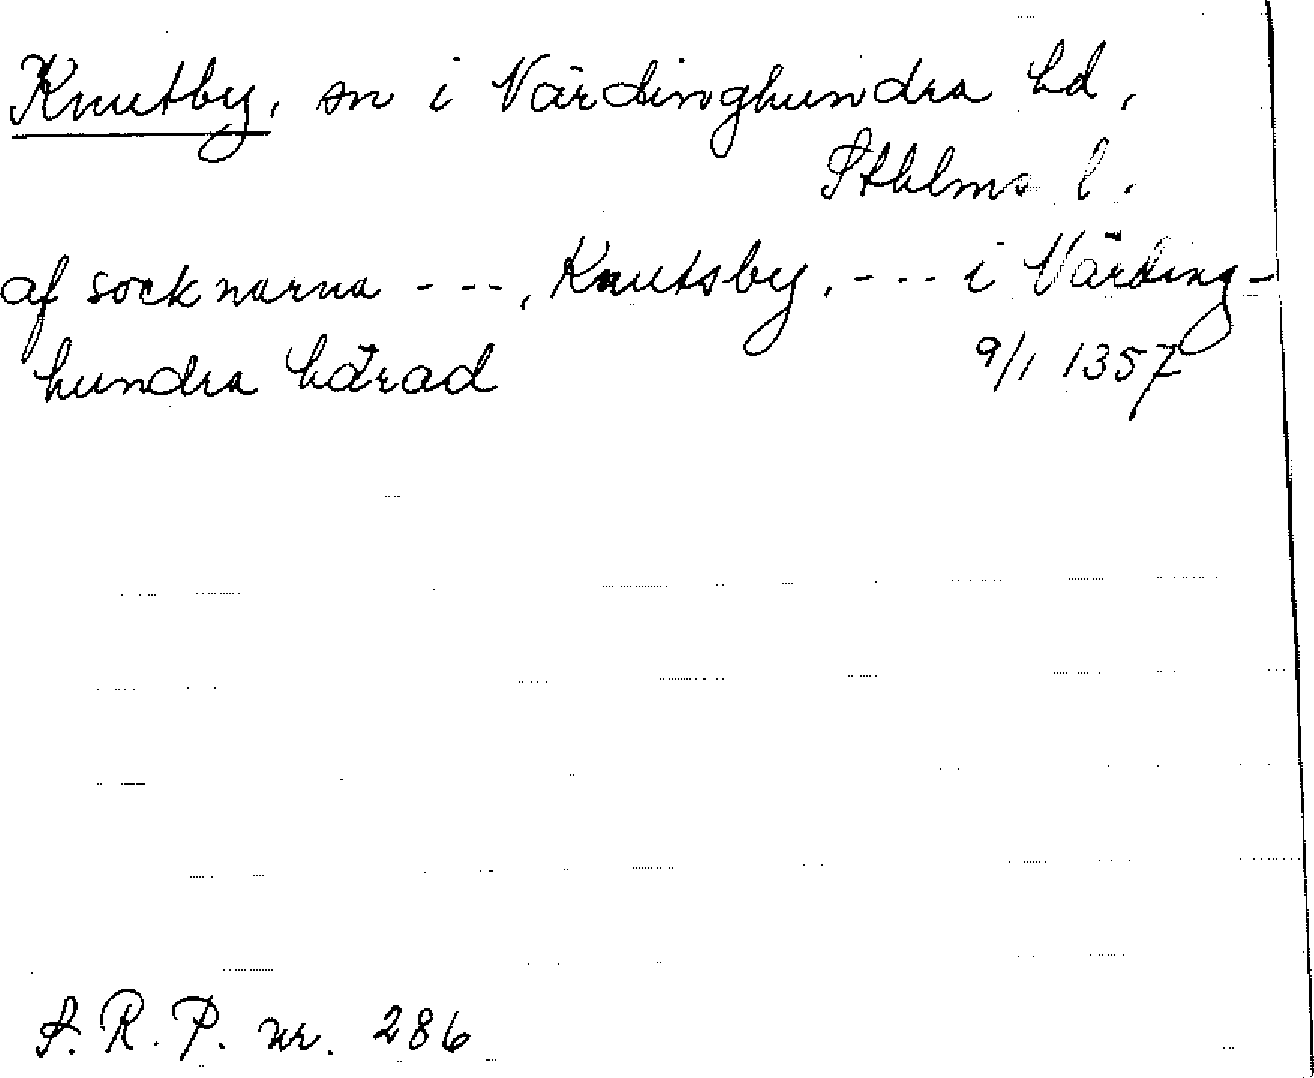 Knutby, sn i Närdinghundra hd,
Sthlms l.
af socknarna ---, Knutsby, --- i Närding-
hundra härad 9/1 1357
S.R.P. nr. 286